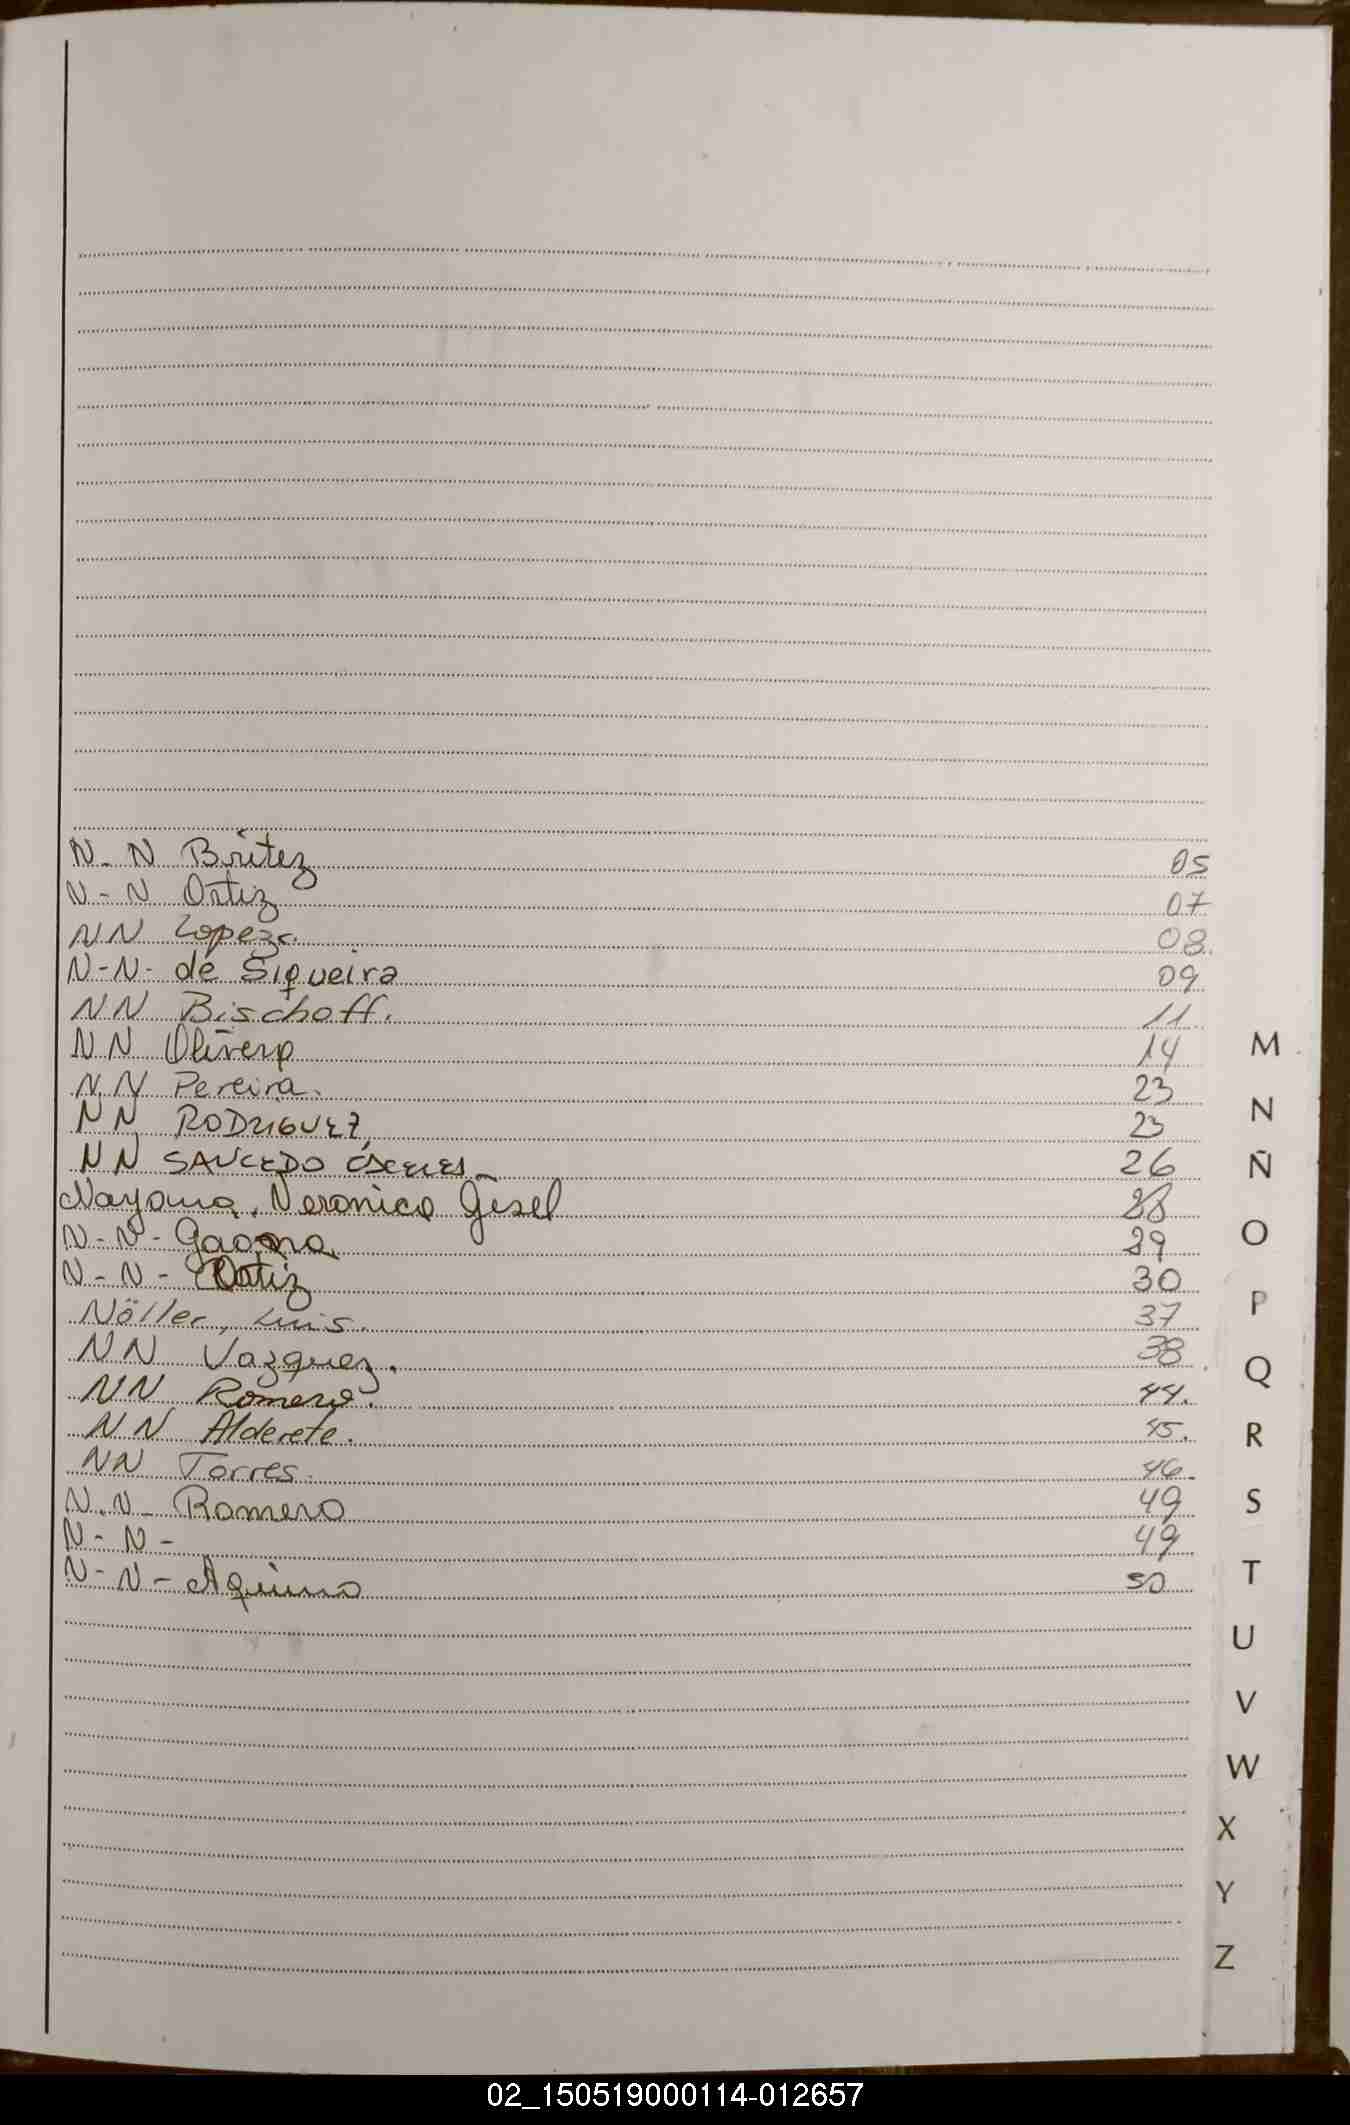 N-N Britez 05
N-N Ortiz 07
NN Lopez 08
N-N- de Siqueira 09
NN Bischoff. 11
NN Olivera 14
N.N Pereira. 23
NN RODRIGUEZ 23
NN SAUCEDO 26
Nayama, Veronica Gisel 28
N-N- Gaona 29
N-N- Ortiz 30
Nöller, Luis. 37
NN Vazquez. 38
NN Romero. 44.
NN Alderete. 45.
NN Torres. 46
N.N- Romero 49
N-N- 49
N-N- Aquino 50
M
N
Ñ
O
P
Q
R
S
T
U
V
W
X
Y
Z
02_150519000114-012657